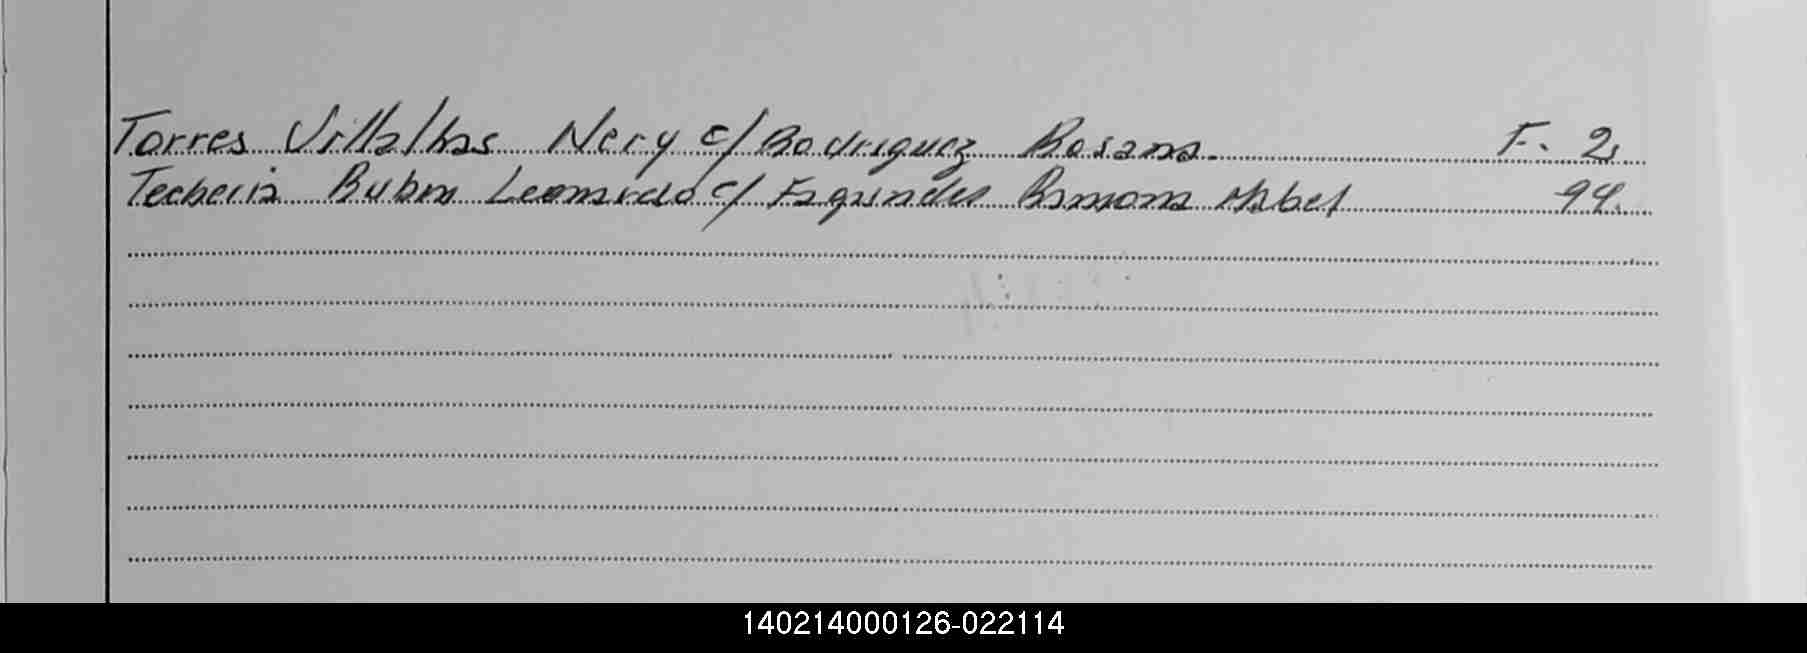 Torres Villalbas Nery c/ Rodriguez Rosana. F. 2
Techeria Ruben Leonardo c/ Fagundes Ramona Mabel 94.
140214000126-022114